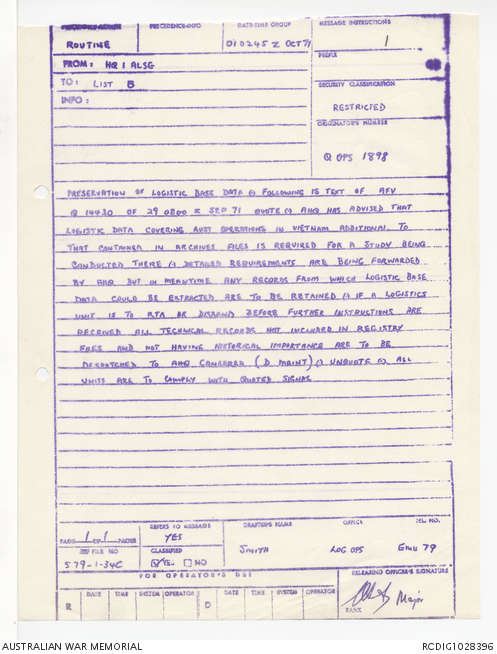 PRECEDENCE-ACTION PRECEDENCE-INFO DATE-TIME GROUP MESSAGE INSTRUCTIONS
ROUTINE 010245 Z OCT 71
PREFIX 1
FROM: HQ 1 ALSG
TO: LIST B SECURITY CLASSIFICATION
INFO: RESTRICTED
ORIGINATOR'S NUMBER
Q OPS 1898
PRESERVATION OF LOGISTIC BASE DATA (.) FOLLOWING IS TEXT OF AFV
Q 14430 OF 29 0800 Z SEP 71 QUOTE (.) AHQ HAS ADVISED THAT
LOGISTIC DATA COVERING AUST OPERATIONS IN VIETNAM ADDITIONAL TO
THAT CONTAINED IN ARCHIVES FILES IS REQUIRED FOR A STUDY BEING
CONDUCTED THERE (.) DETAILED REQUIREMENTS ARE BEING FORWARDED
BY AHQ BUT IN MEANTIME ANY RECORDS FROM WHICH LOGISTIC BASE
DATA COULD BE EXTRACTED ARE TO BE RETAINED (.) IF A LOGISTICS
UNIT IS TO RTA OR DISBAND BEFORE FURTHER INSTRUCTIONS ARE
RECEIVED ALL TECHNICAL RECORDS NOT INCLUDED IN REGISTRY
FILES AND NOT HAVING HISTORICAL IMPORTANCE ARE TO BE
DESPATCHED TO AHQ CANBERRA (D MAINT) (.) UNQUOTE (.) ALL
UNITS ARE TO COMPLY WITH QUOTED SIGNAL
PAGE 1 OF 1 PAGES REFERS TO MESSAGE DRAFTER'S NAME OFFICE TEL. NO.
YES
FILE NO CLASSIFIED SMITH LOG OPS EMU 79
579-1-34C YES NO
FOR OPERATOR'S USE RELEASING OFFICER'S SIGNATURE
R DATE TIME SYSTEM OPERATOR D DATE TIME SYSTEM OPERATOR
RANK Major
AUSTRALIAN WAR MEMORIAL RCDIG1028396